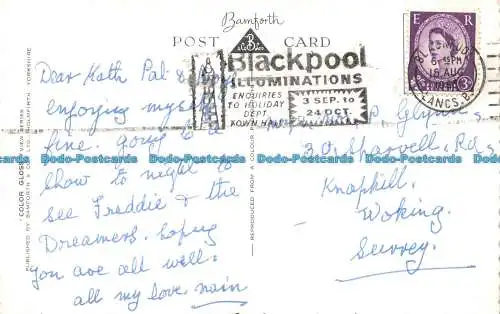 Bamforth
POST CARD
Blackpool
ILLUMINATIONS
ENQUIRIES
TO HOLIDAY
DEPT
TOWN HALL
3 SEP. to
24 OCT.
E R
3
6-15PM
18 AUG
LANCS.
Dear Kath Pal &
enjoying myself
fine. going to a
show to night to
see Freddie & the
Dreamers. hoping
you are all well.
all my love nain
Glynn
Knaphill,
Woking.
Surrey.
"COLOR GLOSS" VIEW SERIES
PUBLISHED BY BAMFORTH & CO. LTD. HOLMFIRTH YORKSHIRE
REPRODUCED FROM A COLOUR
Dodo-Postcards Dodo-Postcards Dodo-Postcards Dodo-Postcards Dodo-Postcards